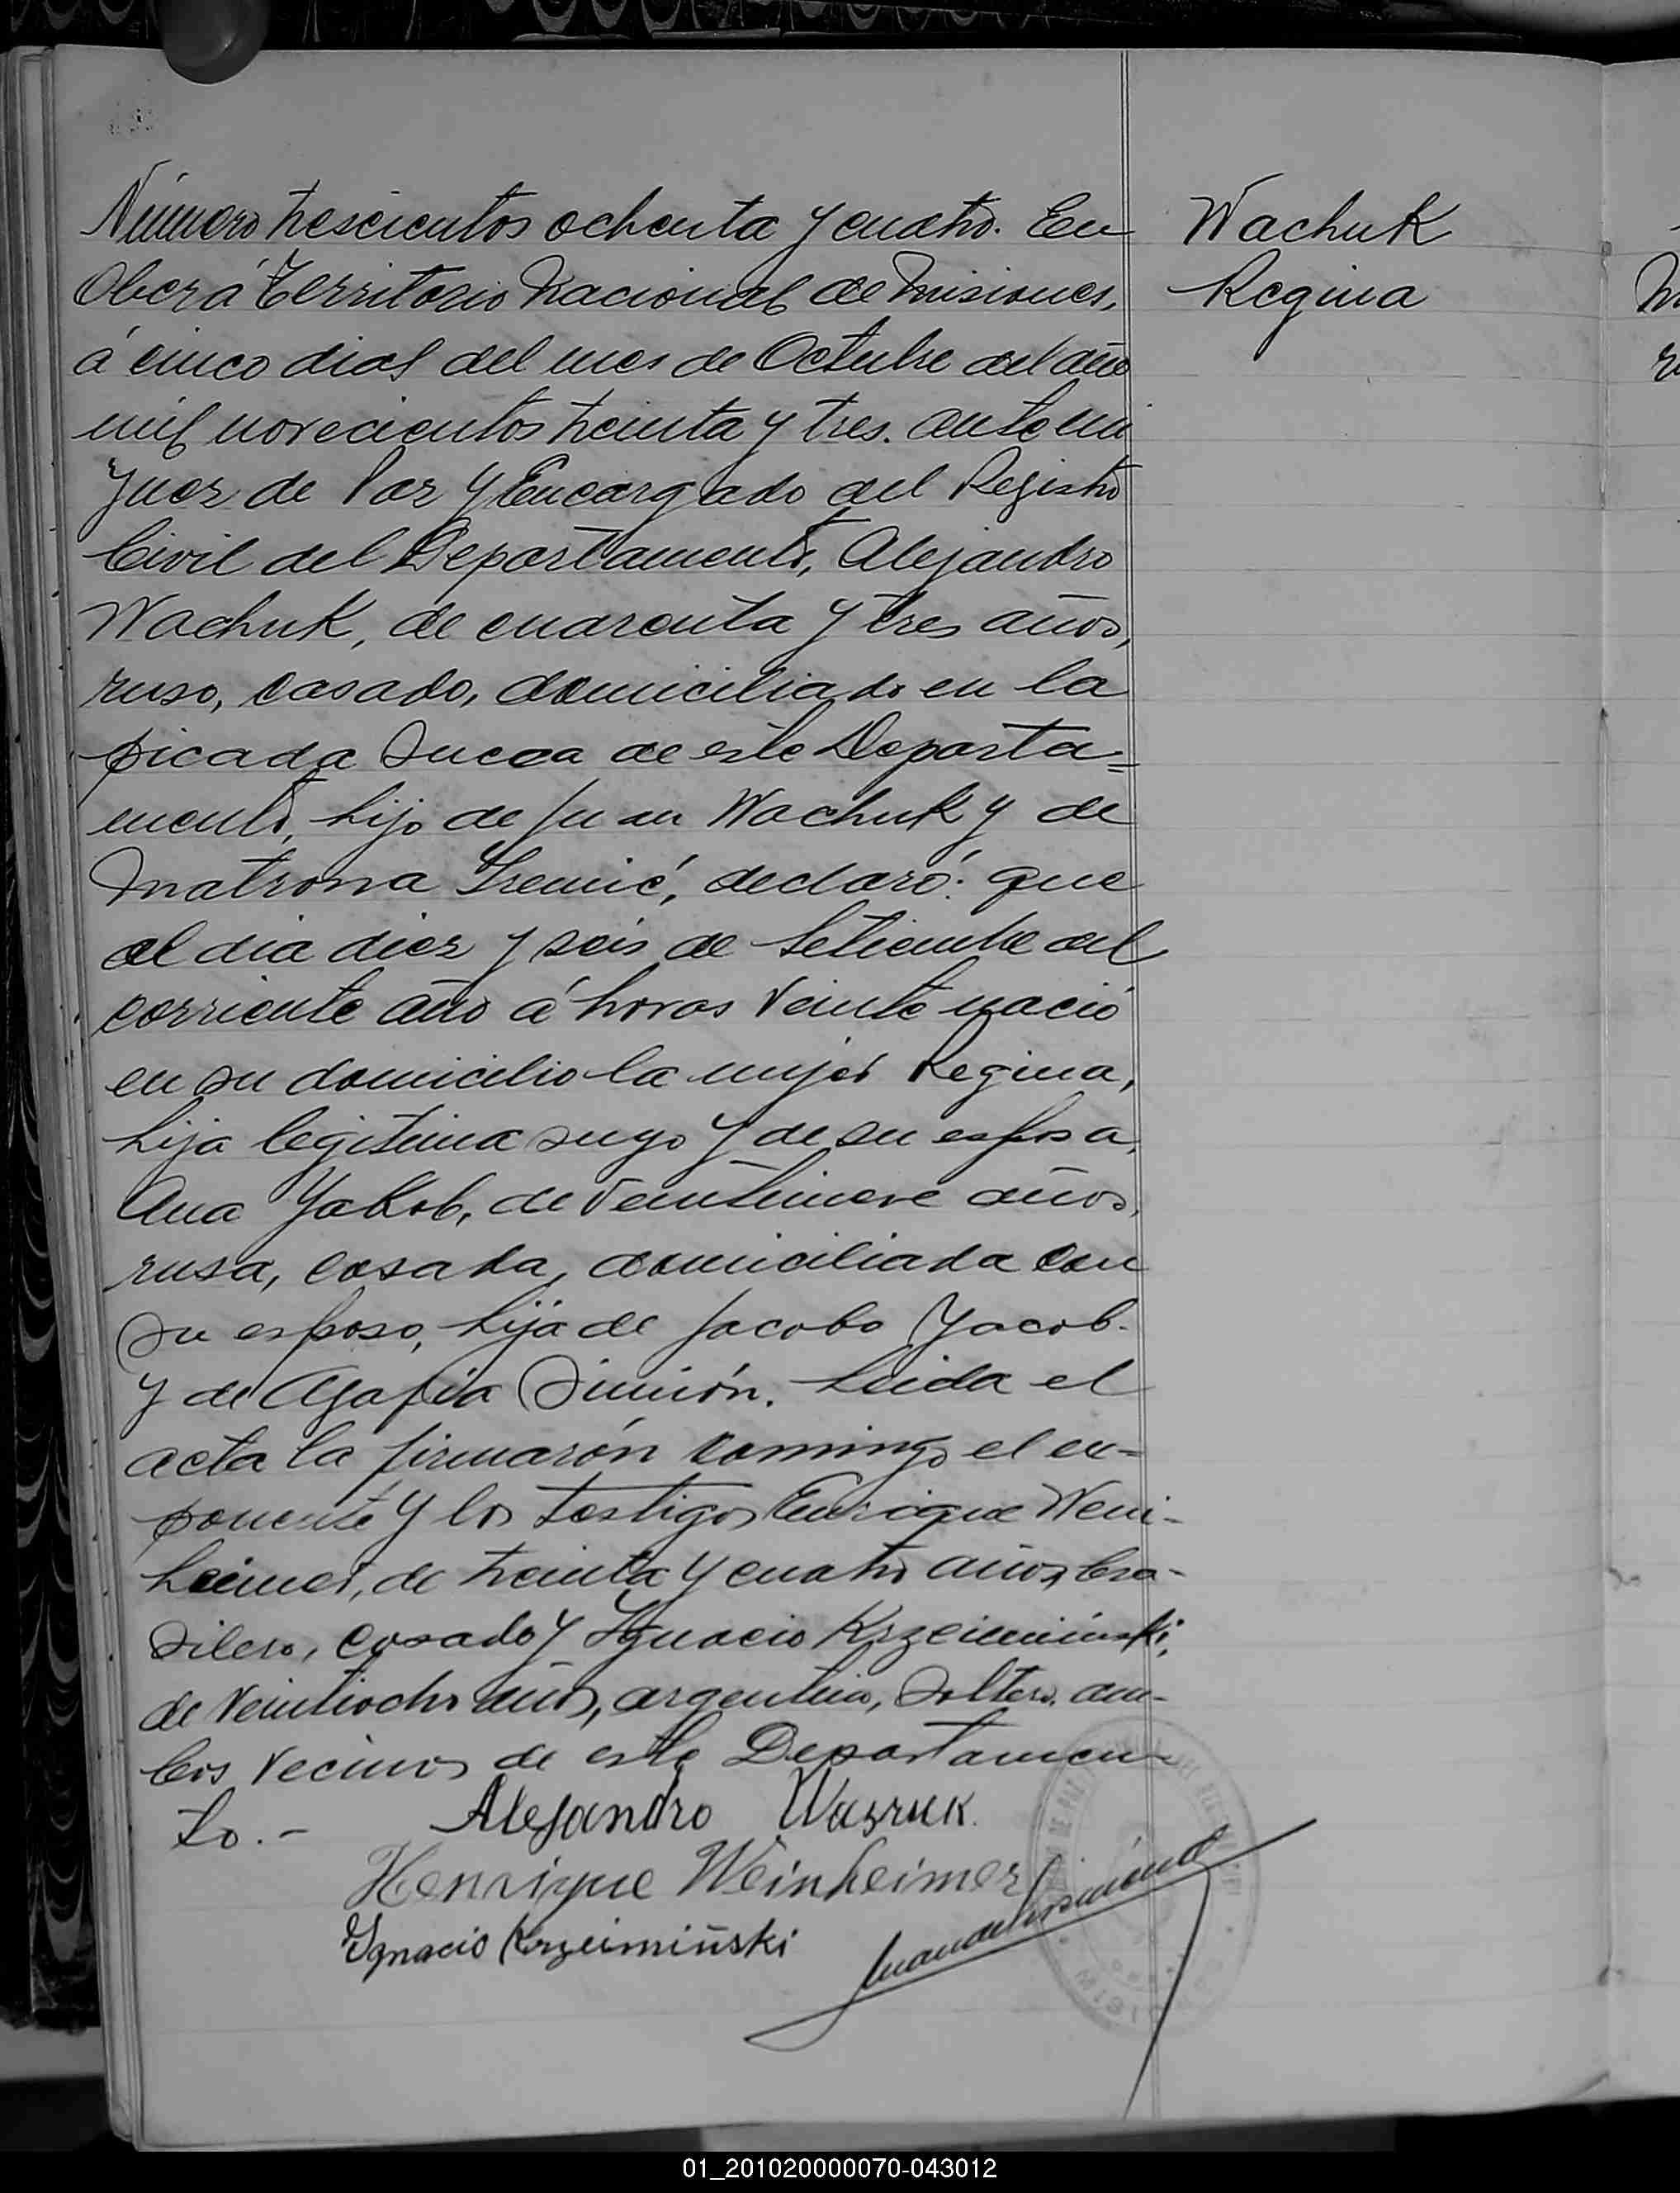 Número trescientos ochenta y cuatro. En
Oberá Territorio Nacional de Misiones,
á cinco dias del mes de Octubre del año
mil novecientos treinta y tres. ante mi
Juez de Paz y Encargado del Registro
Civil del Departamento, Alejandro
Wachuk, de cuarenta y tres años,
ruso, casado, domiciliado en la
picada Sueca de este Departa=
mento, hijo de Juan Wachuk y de
Matrona, declaró: que
el dia diez y seis de Setiembre del
corriente año á horas veinte nació
en su domicilio la mujer Regina,
hija legitima suya y de su esposa,
Ana Yakob, de veintinueve años,
rusa, casada, domiciliada con
su esposo, hija de Jacobo Yacob.
y de Agafia Simión. Leida el
acta la firmarón conmigo el ex=
ponente y los testigos Enrique Wein-
heimer, de treinta y cuatro años, bra-
silero, casado y Ignacio Krzeimiński,
de veintiocho años, argentino, soltero. am-
bos vecinos de este Departamen-
to.-
Alejandro Wazruk.
Henrique Weinheimer
Ignacio Krzeimiñski
Wachuk
Regina
01_201020000070-043012